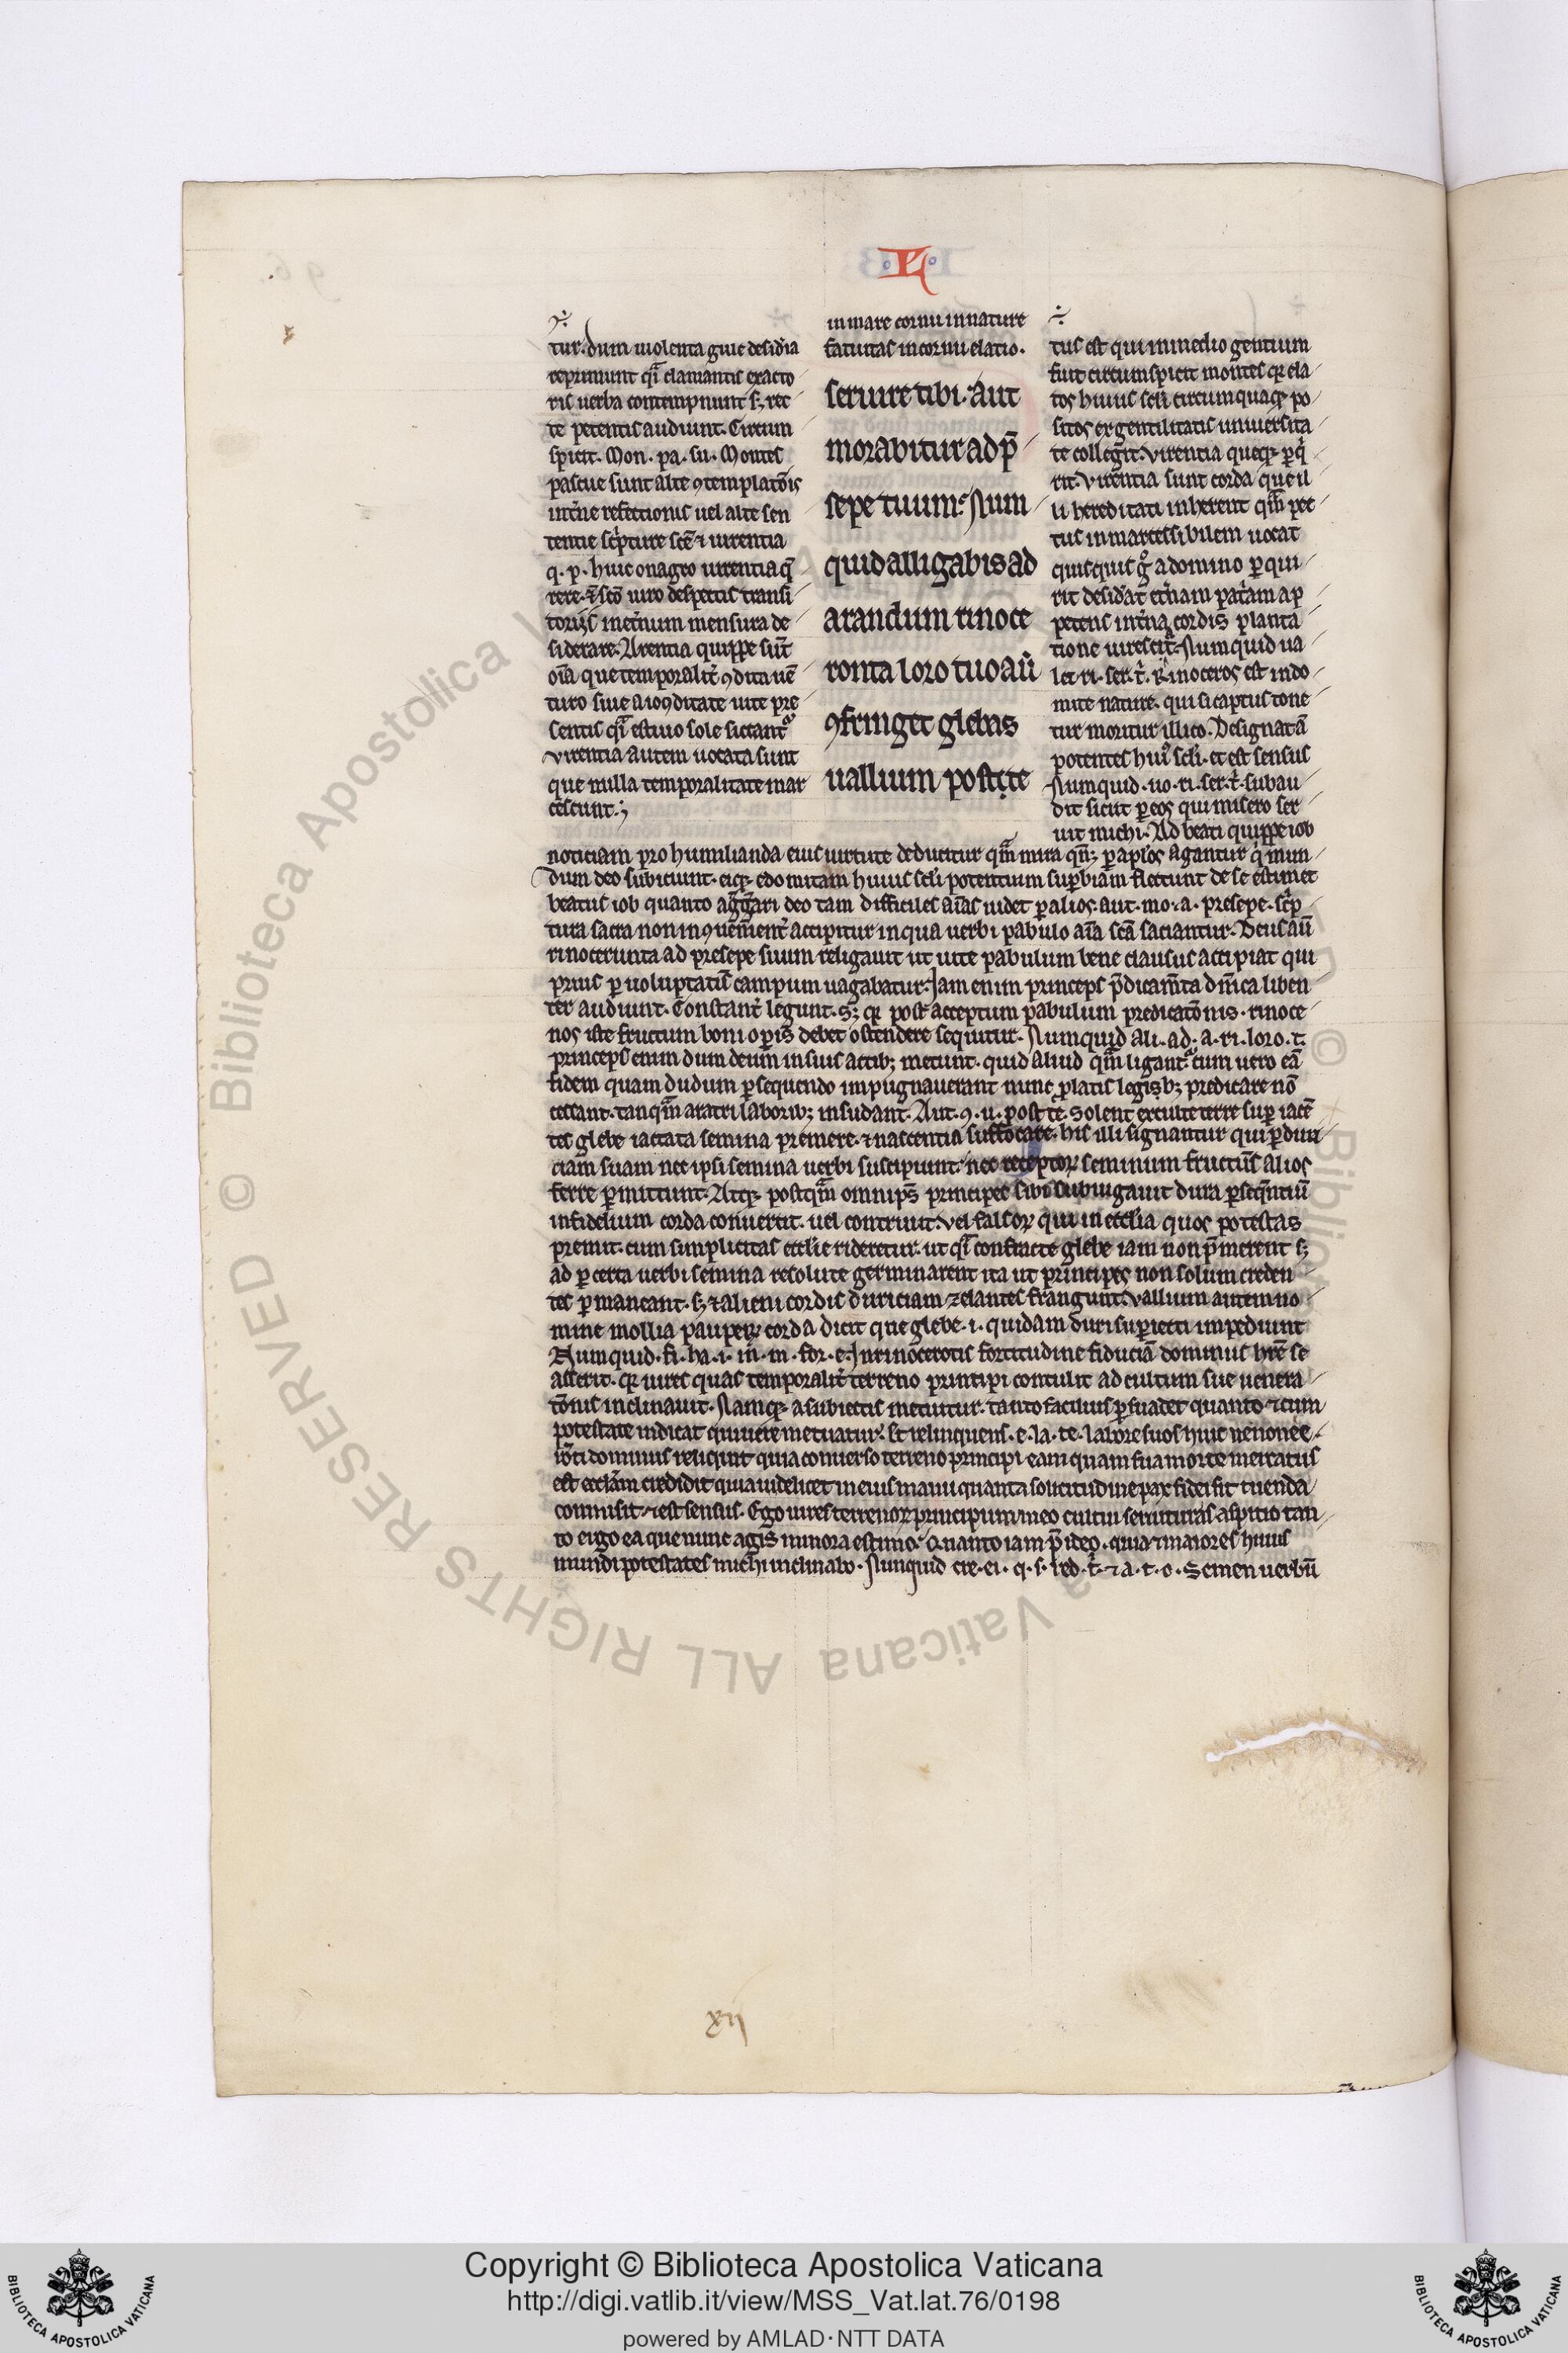 .L.
in mare cornu in nature
fatuitas in cornu elatio.
tur. dum uiolenta gule desid'ia
reprimunt q̄i clamantis exacto
ris uerba contempnunt sꝫ rec
te petentis audiunt. Circum
spicit. Mon. pa. su. Montes
pascue sunt alte ꝯtemplatōis
int̾ne refectionis uel alte sen
tentie sc̾pture scē ⁊ uirentia
q. p. huic onagro uirentia q̄
rere. ē sc̄o uiro despectis transi
torijs in et̾num mensura de
siderare. Arentia quippe sūt
oīa que temporalit̾ ꝯdita uē
turo siue a iocūditate uite pre
sentis q̄i estiuo sole siccant᷑
virentia autem uocata sunt
que nulla temporalitate mar
cescunt.
seruire tibi. aut
morabitur ad p̄
sepe tuum. Num
quid alligabis ad
arandum rinoce
ronta loro tuo aū
ꝯfringet glebas
uallium post te
tus est qui in medio gentium
fuit circumspicit montes qꝫ ela
tos huius sc̄li circumquaqꝫ po
sitos ex gentilitatis uniuersita
te collegit. virentia queqꝫ ꝑq̾
rit. Virentia sunt corda que il
li hereditati inherent qm̄ pe
tus inmarcessibilem uocat
quisquis g̊ a domino ꝑqui
rit desid̾at et̾nam pat̾am ap
petens int̾na cordis planta
tione uirescit. Numquid ua
let ri. ser. t̾. Rinoceros est indo
mite nature. qui si captus tene
tur moritur illico. Designat aū
potentes hui᷒ sc̄li. et est sensus
Numquid. uo. ri. ser. t̾. subau
dit sicut ꝑ eos qui misero ser
uit michi. Ad beati quippe iob
noticiam pro humilianda eius uirtute deducitur qm̄ mira qn̄ꝫ ꝑ aplos agantur q̾ mun
dum deo subiciunt. eiqꝫ edomitam huius sc̄li potentium suꝑbiam flectunt de se estimet
beatus iob quanto aggrari deo tam difficiles aīas uidet ꝑ alios. aut. mo. a. presepe. sc̾p
tura sacra non inꝯuenient̾ accipitur in qua uerbi pabulo aīa scā saciantur. Deus aū
rinoceronta ad presepe suum religauit ut uite pabulum bene clausus accipiat qui
prius ꝑ uoluptatis campum uagabatur. Iam enim princeps p̄dicam̄ta dn̄ica liben
ter audiunt. Constant̾ legunt. sꝫ qꝫ post acceptum pabulum predicatōnis. rinoce
ros iste fructum boni oꝑis debet ostendere sequitur. Numquid ali. ad. a. ri. loro. t.
princeps enim dum deum in suis actibꝫ metunt. quid aliud qm̄ ligant᷑. cum uero eā
fidem quam dudum ꝑsequendo impugnauerant nunc ꝓlatis legibꝫ predicare nō
cessant. tanqm̄ aratri laboribꝫ insudant. Aut. ꝯ. u. post te. Solent exculte terre suꝑ iacē
tes glebe iactata semina premere. ⁊ nascentia suffocare. his illi signantur qui ꝑ duri
ciam suam nec ipsi semina uerbi suscipiunt. nec receptoꝝ seminum fructus alios
ferre ꝑmittunt. Atqꝫ postqm̄ omnips̄ principes sibi subiugauit dura ꝑseq̄ntiū
infidelium corda conuertit. uel contriuit. vel falsoꝝ qui in ecclia quos potestas
premit. cum simplicitas ecclie rideretur. ut q̄i confracte glebe iam non p̄merent sꝫ
ad ꝑcerta uerbi semina resolute germinarent ita ut principes non solum creden
tes ꝑmaneant. sꝫ ⁊ alieni cordis duriciam zelantes frangunt. Vallium autem no
mine mollia pauperꝝ corda dicit que glebe. i. quidam duri suꝑiecti impediunt
Numquid. fi. ha. i. m̄. m. for. e. In rinocerotis fortitudine fiduciā dominus hr̄e se
asserit. qꝫ uires quas temporalit̾ terreno principi contulit ad cultum sue uenera
tōnis inclinauit. Namqꝫ a subiectis metuitur. tanto facilius ꝑsuadet quanto ⁊ cum
potestate indicat qui uere metuatur. Et relinquens. e. la. te. labore suos huic
dominus reliquit quia conuerso terreno principi eam quam sua morte mercatus
est eccl̄am credidit quia uidelicet in eius manu quanta solicitudine pax fidei sit tuenda
commisit. ⁊ est sensus. Ego uires terrenoꝝ principum meo cultui seruituras aspicio tan
to ergo ea que nunc agis minora estimo. Quanto iam p̄ideo. quia ⁊ maiores huius
mundi potestates michi inclinabo. Nunquid cre. ei. q. s. red. t̾. ⁊ a. t. o. Semen uerbū
xij
Copyright © Biblioteca Apostolica Vaticana
http://digi.vatlib.it/view/MSS_Vat.lat.76/0198
powered by AMLAD·NTT DATA
BIBLIOTECA APOSTOLICA VATICANA
BIBLIOTECA APOSTOLICA VATICANA